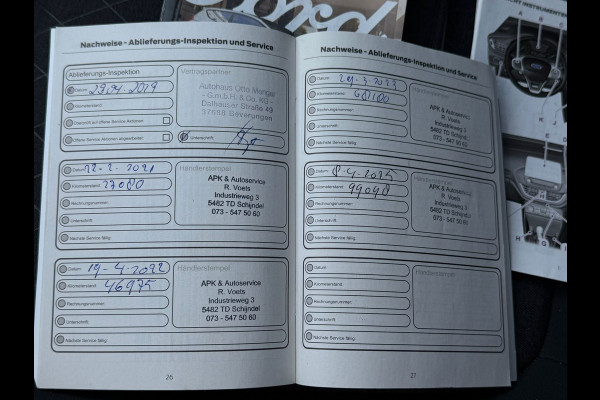 Ford
Nachweise - Ablieferungs-Inspektion und Service
Ablieferungs-Inspektion
Datum 29.04.2019
Kilometerstand
Überprüft auf offene Service-Aktionen
Offene Service-Aktionen abgearbeitet
Vertragspartner
Autohaus Otto Menge
- G.m.b.H. & Co. KG -
Dalhauser Straße 49
37688 Beverungen
Unterschrift
Datum 12-2-2021
Kilometerstand 27080
Rechnungsnummer
Unterschrift
Nächste Service fällig
Händlerstempel
APK & Autoservice
R. Voets
Industrieweg 3
5482 TD Schijndel
073 - 547 50 60
Datum 19-4-2022
Kilometerstand 46975
Rechnungsnummer
Unterschrift
Nächste Service fällig
Händlerstempel
APK & Autoservice
R. Voets
Industrieweg 3
5482 TD Schijndel
073 - 547 50 60
26
Nachweise - Ablieferungs-Inspektion und Service
Datum
Kilometerstand 68100
Rechnungsnummer
Unterschrift
Nächste Service fällig
APK & Autoservice
R. Voets
Industrieweg 3
5482 TD Schijndel
073 - 547 50 60
Datum 8-4-2025
Kilometerstand 99098
Rechnungsnummer
Unterschrift
Nächste Service fällig
Händlerstempel
APK & Autoservice
R. Voets
Industrieweg 3
5482 TD Schijndel
073 - 547 50 60
Datum
Kilometerstand
Rechnungsnummer
Unterschrift
Nächste Service fällig
Händlerstempel
27
A
H